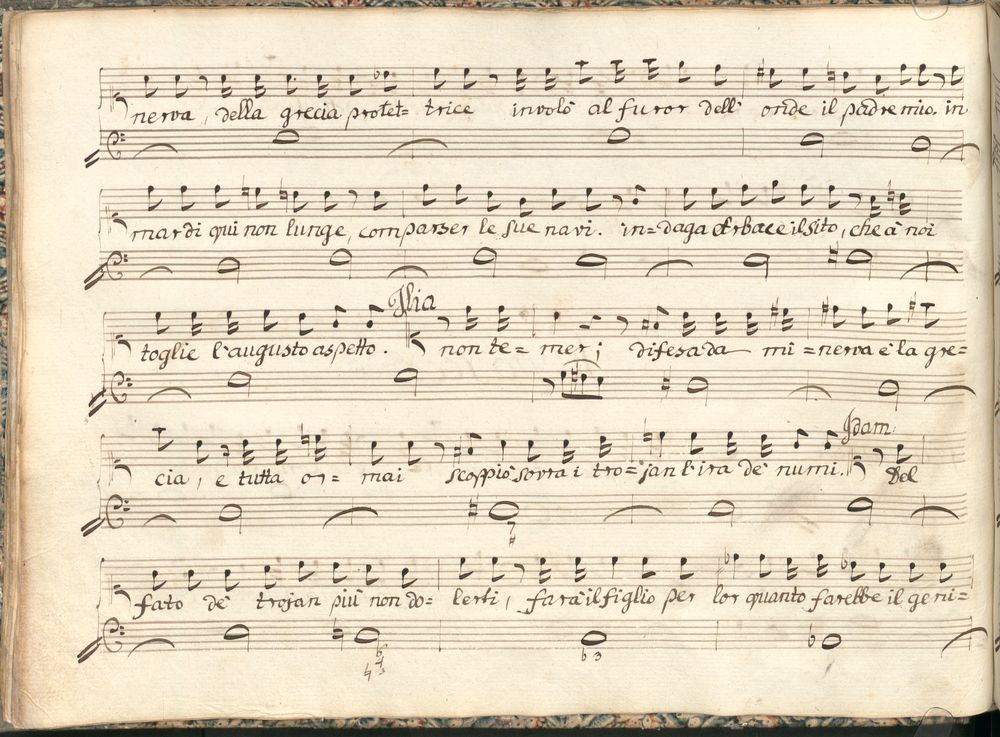 nerva, della grecia protet= trice involò al furor dell' onde il padre mio. in
mardi qui non lunge, comparser le sue navi. in=daga Arbace il sito, che à noi
Ilia
toglie l'augusto aspetto. non te= mer; difesa da mi=nerva è la gre=
Idam:
cia, e tutta or= mai scoppiò sovra i tro=jan l'ira de' numi. Del
7
#
fato de' trojan più non do= lerti, farà il figlio per lor quanto farebbe il geni=
♭6
4
4 3
♭3